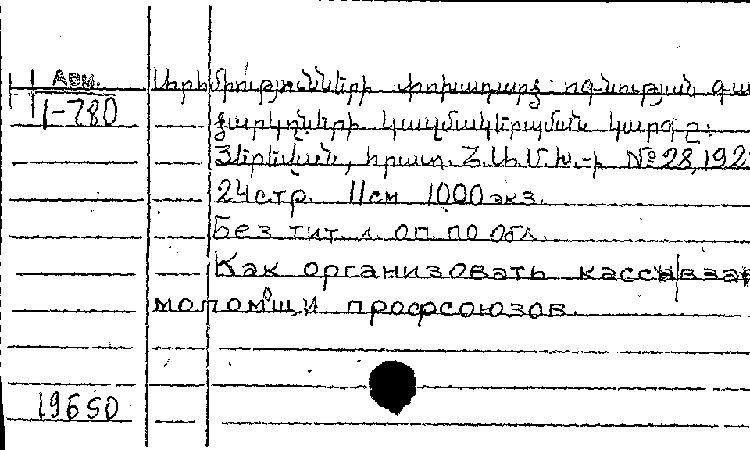 Арм.
1-780
Արհմիությունների փոխադարձ օգնության գա
ձարկղների կազմակերպման կարգը։
Յերեվան, հրատ. Հ.Ա.Մ.Խ.-ի №28, 192
24 стр. 11см 1000 экз.
Без тит. л. оп. по обл.
Как организовать кассы вза
мопомощи профсоюзов.
19650